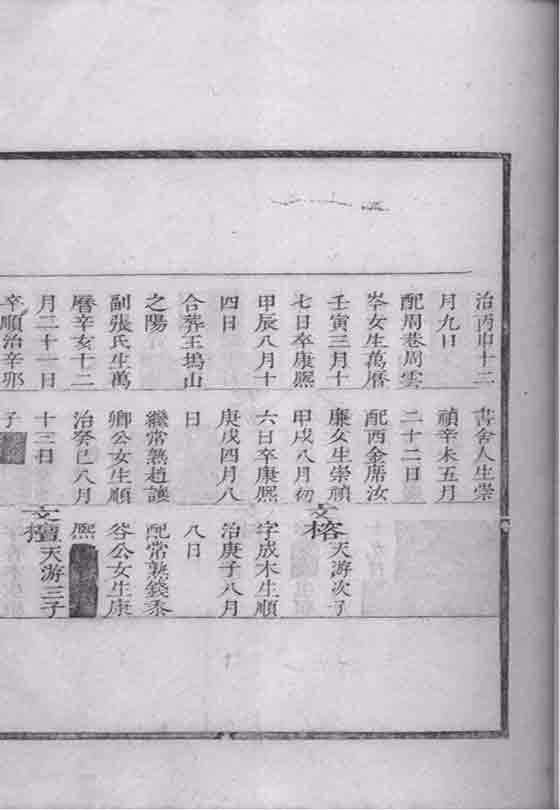 治丙申十二
月九日
配周巷周雲
岑女生萬曆
壬寅三月十
七日卒康熙
甲辰八月十
四日
合葬王塢山
之陽
副張氏生萬
曆辛亥十二
月二十一日
卒順治辛卯
書舍人生崇
禎辛未五月
二十二日
配西金席汝
廉女生崇禎
甲戌八月初
六日卒康熙
庚戌四月八
日
繼常熟趙護
卿公女生順
治癸巳八月
十三日
子
文榕 天游次子
字成木生順
治庚子八月
八日
配常熟錢黍
谷公女生康
熙
文檀 天游三子